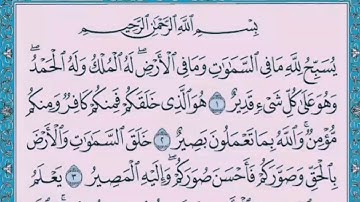 بِسْمِ ٱللَّهِ ٱلرَّحْمَٰنِ ٱلرَّحِيمِ
يُسَبِّحُ لِلَّهِ مَا فِى ٱلسَّمَٰوَٰتِ وَمَا فِى ٱلْأَرْضِ ۖ لَهُ ٱلْمُلْكُ وَلَهُ ٱلْحَمْدُ ۖ
وَهُوَ عَلَىٰ كُلِّ شَىْءٍ قَدِيرٌ ١ هُوَ ٱلَّذِى خَلَقَكُمْ فَمِنكُمْ كَافِرٌ وَمِنكُم
مُّؤْمِنٌ ۚ وَٱللَّهُ بِمَا تَعْمَلُونَ بَصِيرٌ ٢ خَلَقَ ٱلسَّمَٰوَٰتِ وَٱلْأَرْضَ
بِٱلْحَقِّ وَصَوَّرَكُمْ فَأَحْسَنَ صُوَرَكُمْ ۖ وَإِلَيْهِ ٱلْمَصِيرُ ٣ يَعْلَمُ